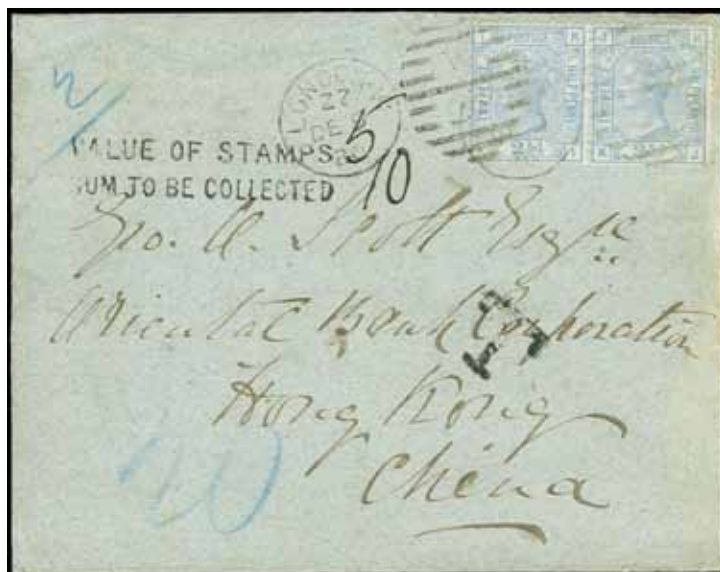 2
LONDON
27
DE
VALUE OF STAMPS 5
SUM TO BE COLLECTED 10
Geo. Scott Esqre
Oriental Bank Corporation
T
Hong Kong
China
20